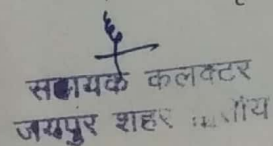 सहायक कलक्टर
जयपुर शहर